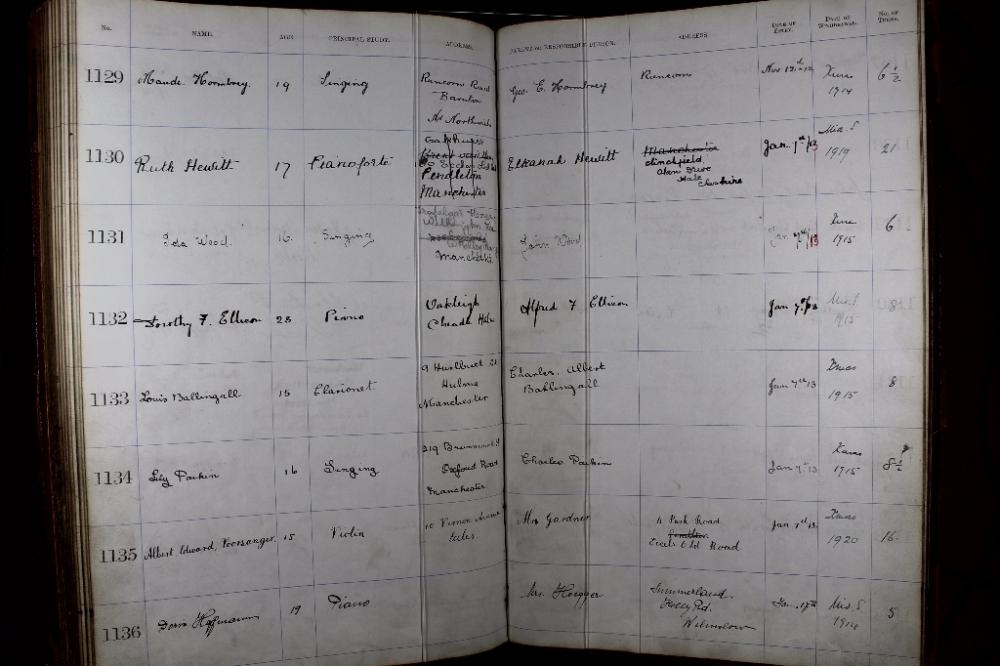 No. NAME. AGE PRINCIPAL STUDY. ADDRESS. PARENT OR RESPONSIBLE PERSON. ADDRESS. DATE OF ENTRY. DATE OF WITHDRAWAL. NO. OF TERMS.
1129 Maude Hornbrey. 19 Singing Runcorn Road Geo. E. Hornbrey Runcorn Nov 12th 12 Xmas 6 1/2
Barnton 1914
Nr Northwich
1130 Ruth Hewitt 17 Pianoforte Elkanah Hewitt Manchester Jan. 7th /13 Mid. S 21
Pendleton clinchfield. 1919
Manchester Hale
Cheshire
1131 Ida Wood. 16. Singing John Wood Jan 7th /13 Xmas 6
Manchester. 1915
1132 Dorothy F. Ellison 23 Piano Oakleigh Alfred F Ellison Jan 7. Mid. S 8
Cheadle Hulme 1915
1133 Louis Ballingall 15 Clarionet 9 St Charles Albert Jan 7th 13 Xmas 8
Hulme Ballingall 1915
Manchester
1134 Lily Parkin 16 Singing 219 Charles Parkin Jan 7th 13 Xmas 8 1/2
Oxford Road 1915
Manchester
1135 Albert Edward, Voorsanger. 15 Violin 10 Vernon Avenue Mrs Gardner 11 Park Road Jan 7th 13. Xmas 16.
Eccles. Eccles Old Road 1920
1136 Doris Hoffmann 19 Piano Summerland Jan. 17th Mid. S 5
Holly Rd. 1914
Wilmslow